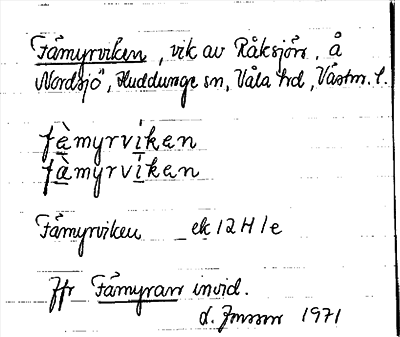 Fåmyrviken, vik av Råksjön, å
Nordsjö, Huddunge sn, Våla hd, Västm. l.
fæ̀myrvíken
fàmyrvíken
Fåmyrviken ek 12H 1e
Jfr Fåmyran invid.
1971